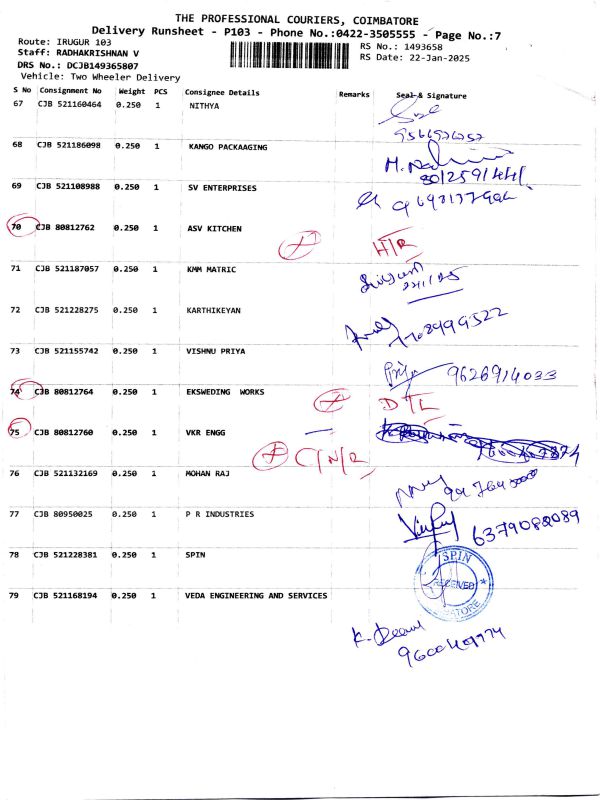 THE PROFESSIONAL COURIERS, COIMBATORE
Delivery Runsheet - P103 - Phone No.:0422-3505555 - Page No.:7
Route: IRUGUR 103
Staff: RADHAKRISHNAN V
DRS No.: DCJB149365807
Vehicle: Two Wheeler Delivery
RS No.: 1493658
RS Date: 22-Jan-2025
S No Consignment No Weight PCS Consignee Details Remarks Seal & Signature
67 CJB 521160464 0.250 1 NITHYA
68 CJB 521186098 0.250 1 KANGO PACKAAGING
69 CJB 521108988 0.250 1 SV ENTERPRISES
70 CJB 80812762 0.250 1 ASV KITCHEN H/R
71 CJB 521187057 0.250 1 KMM MATRIC
72 CJB 521228275 0.250 1 KARTHIKEYAN
73 CJB 521155742 0.250 1 VISHNU PRIYA Priya 9626914033
74 CJB 80812764 0.250 1 EKSWEDING WORKS D T L
75 CJB 80812760 0.250 1 VKR ENGG
C/N/R
76 CJB 521132169 0.250 1 MOHAN RAJ
77 CJB 80950025 0.250 1 P R INDUSTRIES 6379082089
78 CJB 521228381 0.250 1 SPIN
SPIN
RECEIVED
79 CJB 521168194 0.250 1 VEDA ENGINEERING AND SERVICES